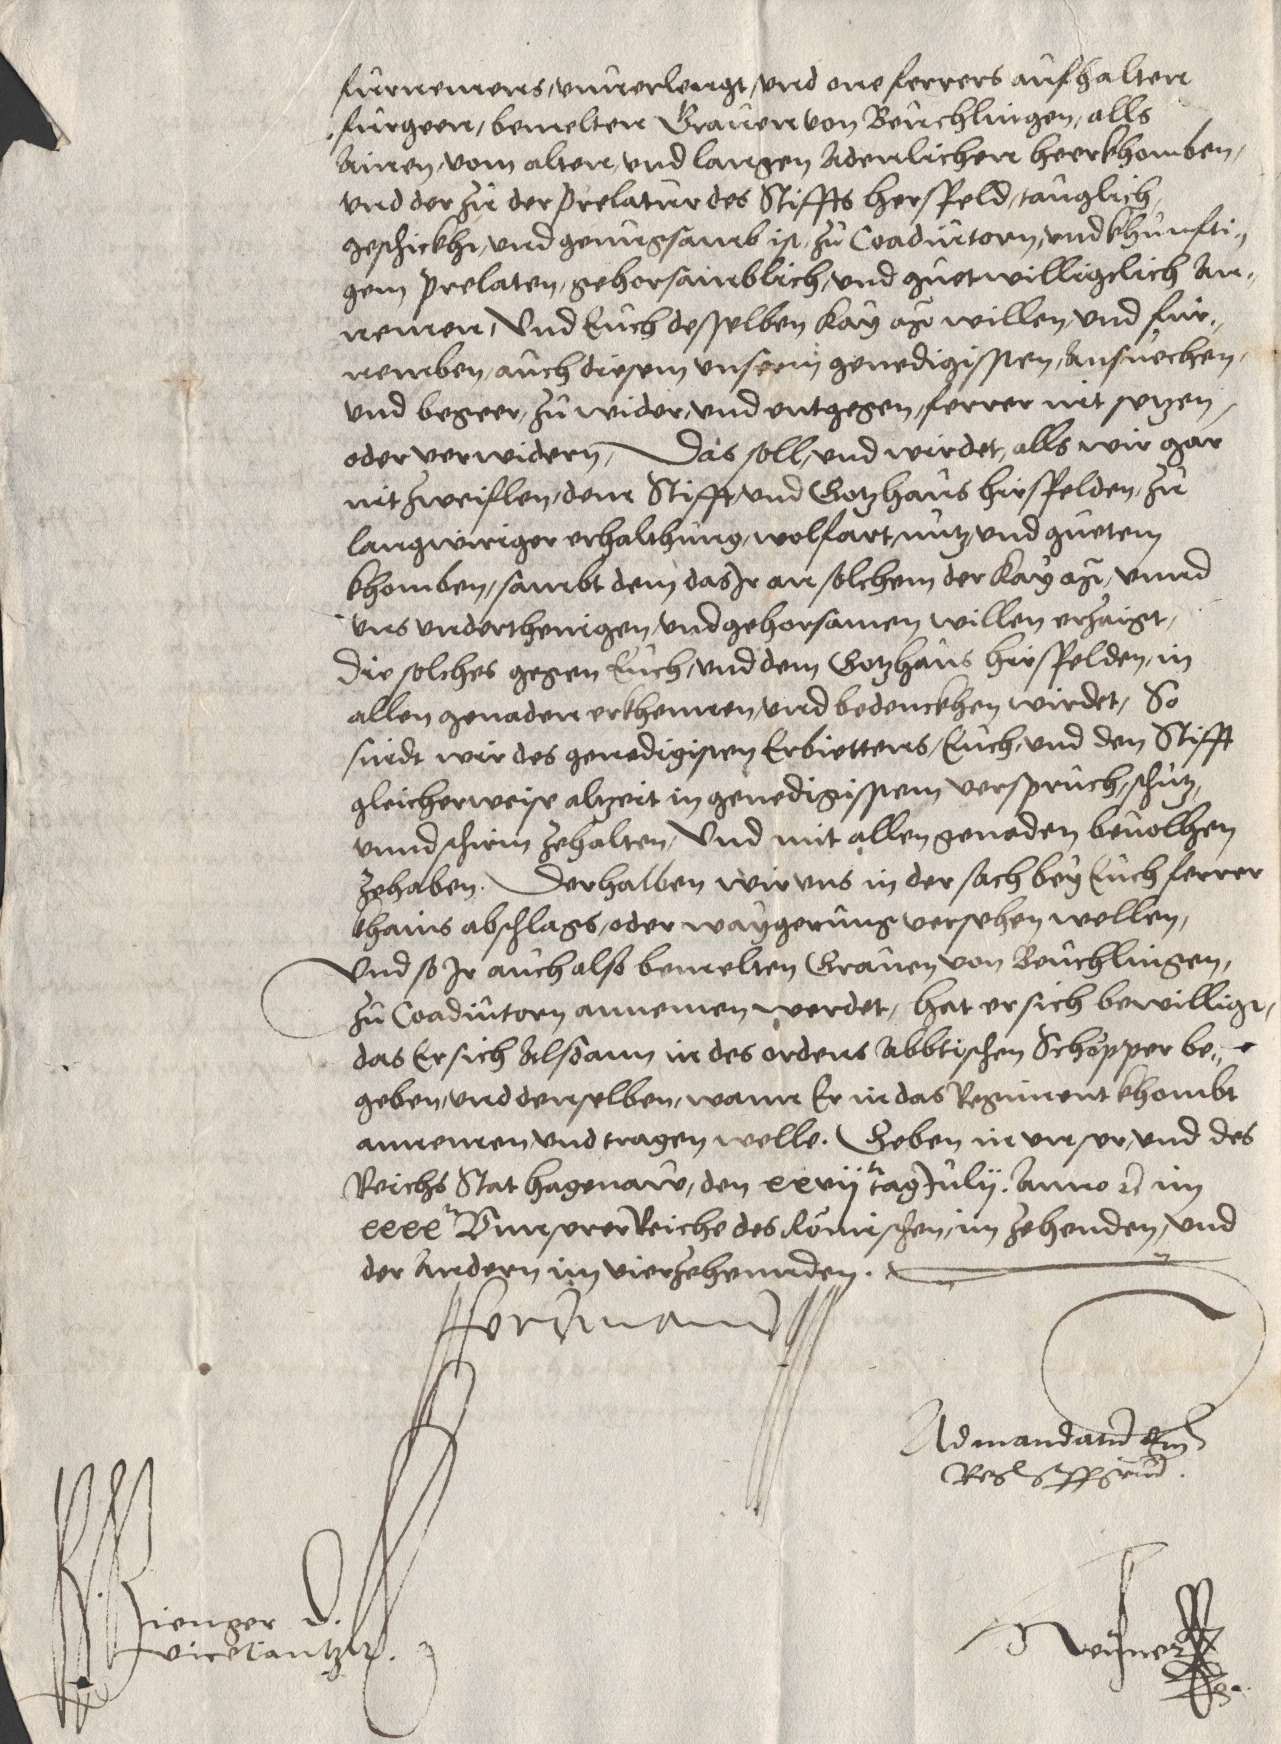 furnemens, unuerlengt, und one ferrers aufhalten
furgeen, bemelten Grauen von Beuchlingen, alls
Ainen, vom alten, und langen Adenlichen heerkhomben,
und der zu der Prelatur des Stiffts Hersfeld, tauglich,
geschickht, und genuegsamb ist, zu Coadiutorn, und khunfti-
gem Prelaten, gehorsamblich, und guetwilligclich An-
nemen, Und Euch desselben Kay Mt willen, und fur-
nemben, auch diesem unserm genedigissten, Ansuechen,
und begeer, zu wider, und entgegen, ferrer nit setzen,
oder verwidern, Das soll, und wirdet, alls wir gar
nit zweiflen, dem Stifft, und Gotzhaus Hirsfelden, zu
langwiriger erhalthung, wolfart, nutz, und guetem
khomben, sambt dem das Ir an solchem der Kay Mt, unnd
uns underthenigen, und gehorsamen willen erzaigt,
Die solches gegen Euch, und dem Gotzhaus Hirsfelden, in
allen genaden erkhennen, und bedenckhen wirdet, So
sindt wir des genedigisten Erbiettens, Euch, und den Stifft
gleicherweise altzeit in genedigisstem verspruch, schutz,
unnd schirm zehalten, Und mit allen genaden beuolhen
zehaben. Derhalben wir uns in der sach bey Euch ferrer
khains abschlags, oder waygerung versehen wellen,
Und so Ir auch also bemelten Grauen von Beuchlingen,
zu Coadiutorn annemen werdet, hat er sich bewilligt,
das Er sich Alsdann in des ordens Abbtischen Schopper be-
geben, und denselben, wann Er in das Regiment khombt
annemen und tragen welle. Geben in unser, und des
Reichs Stat Hagenaw, den xxvii tn tag Julij. Anno im
xxxx n Unnserer Reiche des Römischen, im zehenden, und
der Andern im vierzehennden.
Ferdinand
Ad mandatum dni
Regis
Gienger D.
Vicecantzlr.